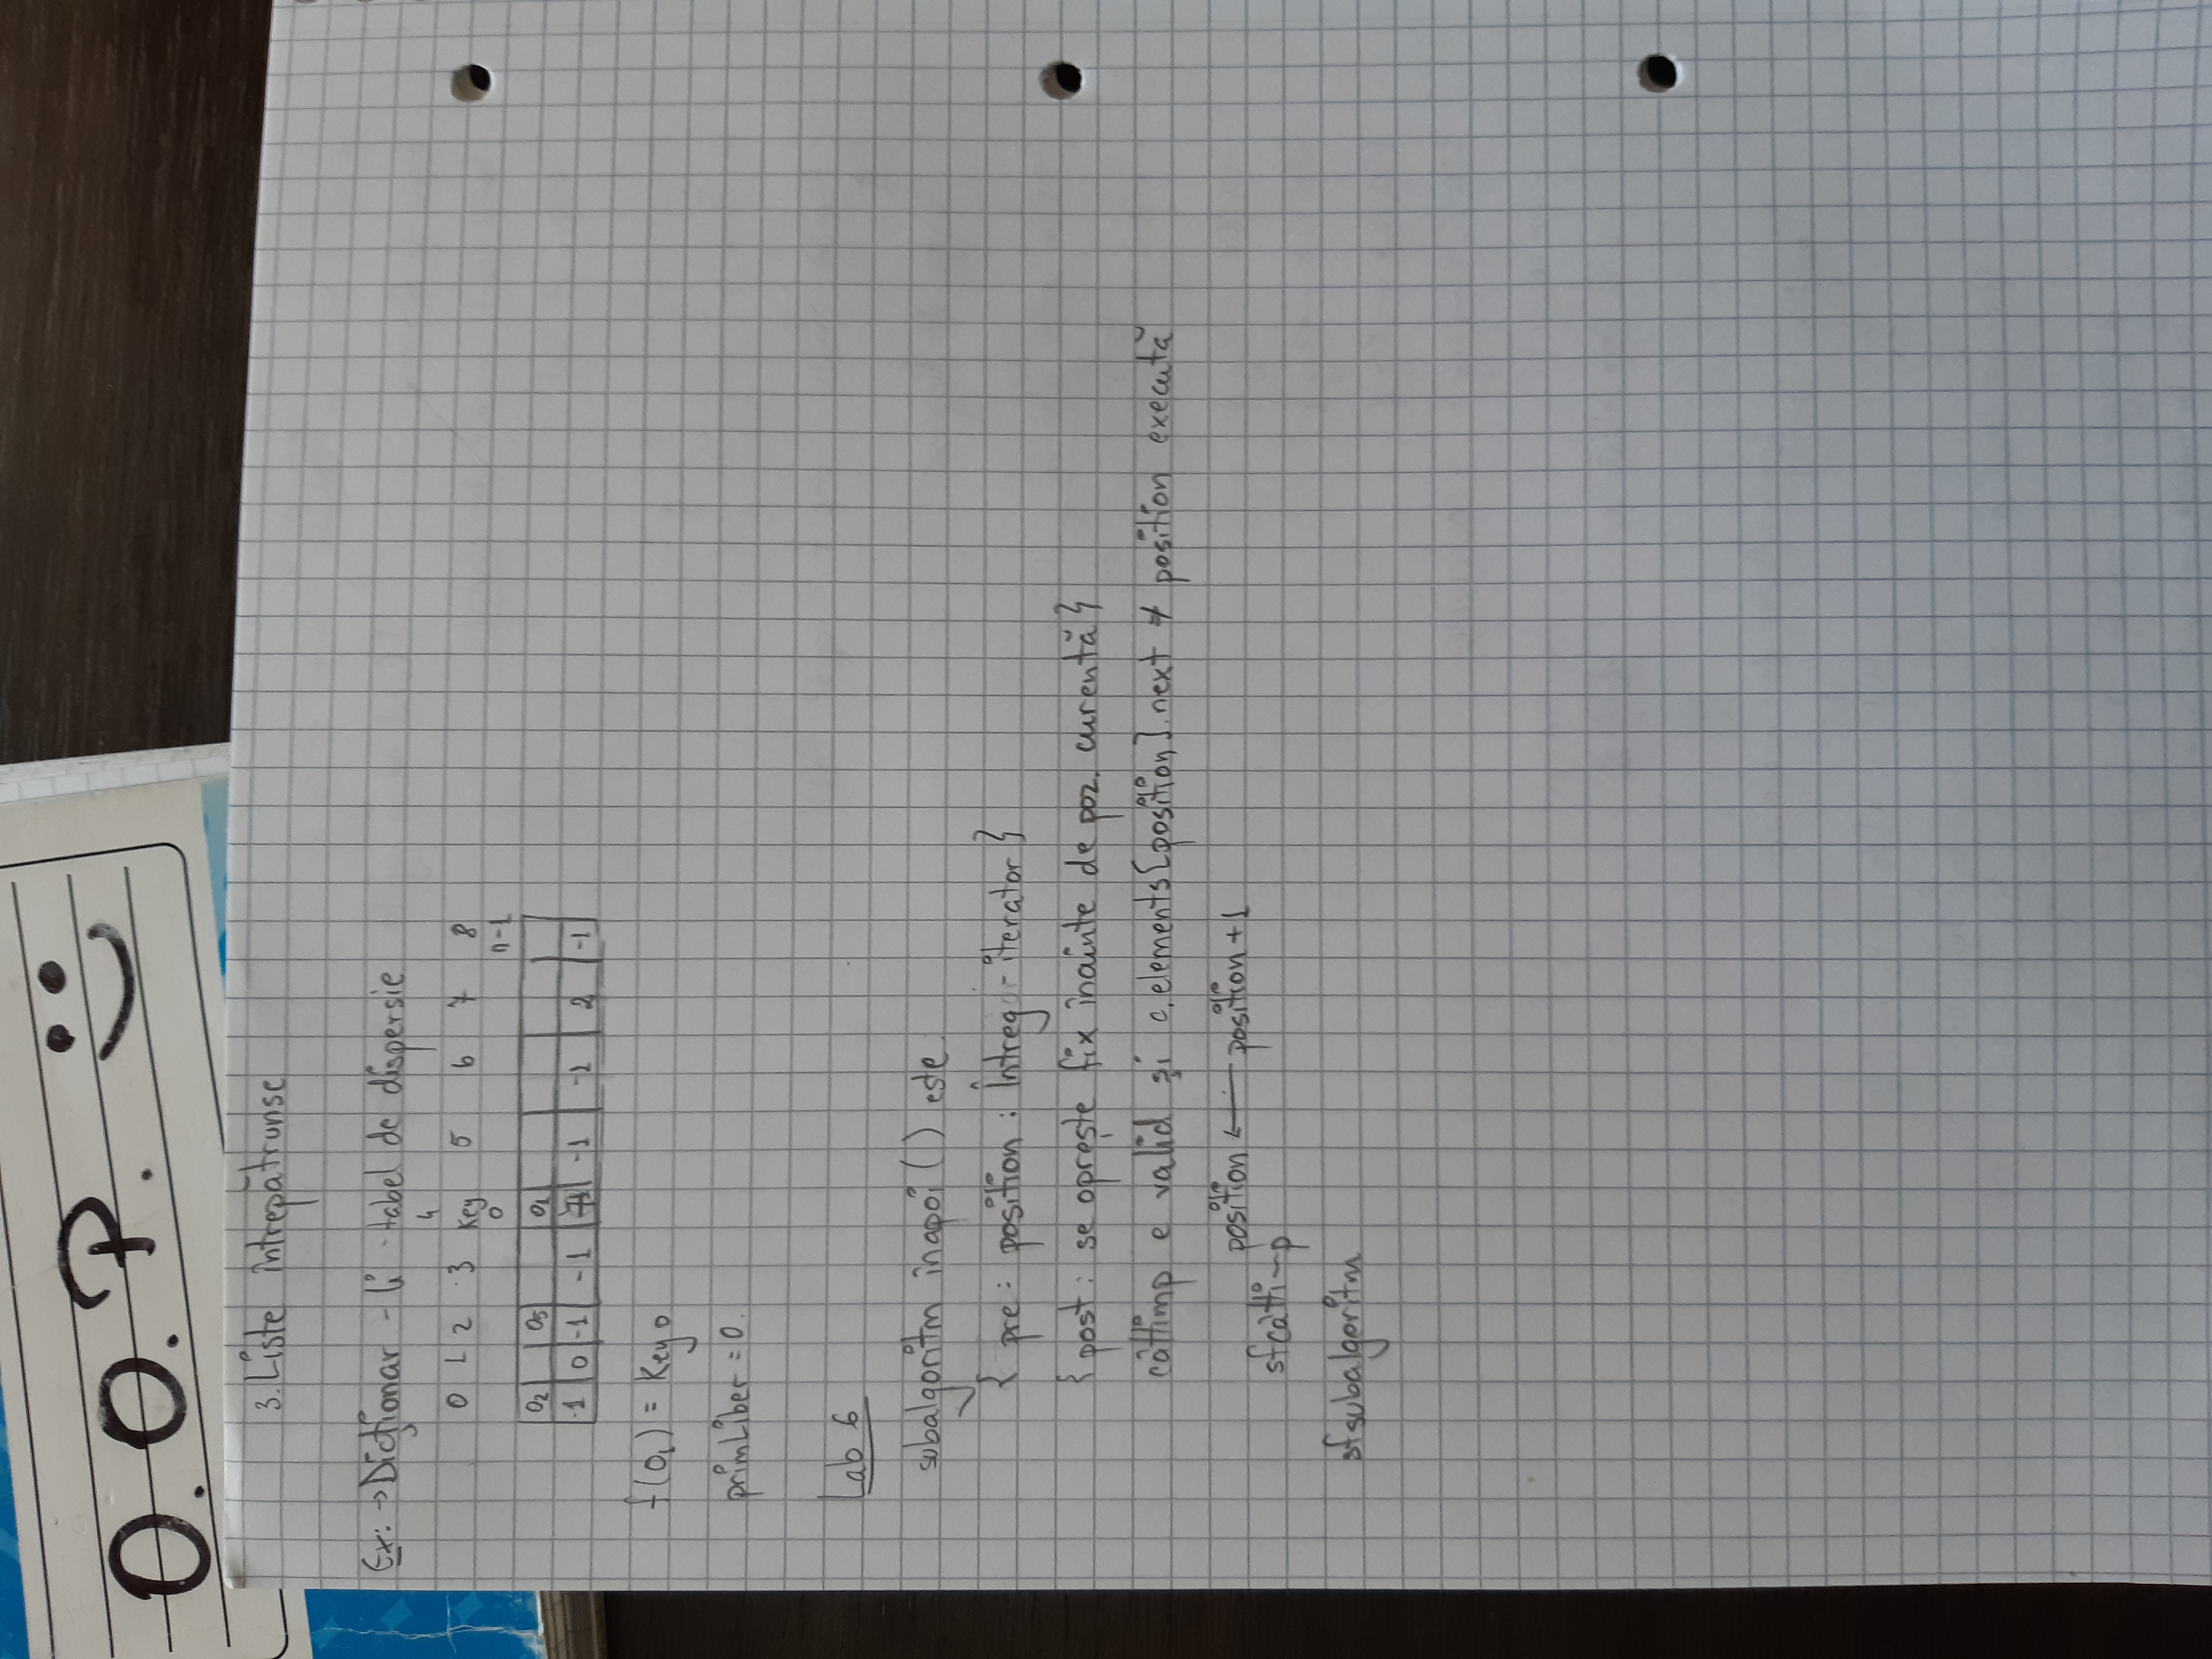 O.O.P.
3. Liste întrepătrunse
Ex: → Dicționar - li - tabel de dispersie
4
0 1 2 3 Key 5 6 7 8
0 n-1
O2 O5 O1
-1 0 -1 -1 -1 -1 2 -1
f(O1) = Key 0
primLiber = 0.
Lab 6
subalgoritm înapoi () este
{ pre: position : Întreg - iterator }
{ post: se oprește fix înainte de poz. curentă }
câttimp e valid și c.elements[position].next ≠ position execută
position ← position + 1
sfcâttimp
sfsubalgoritm